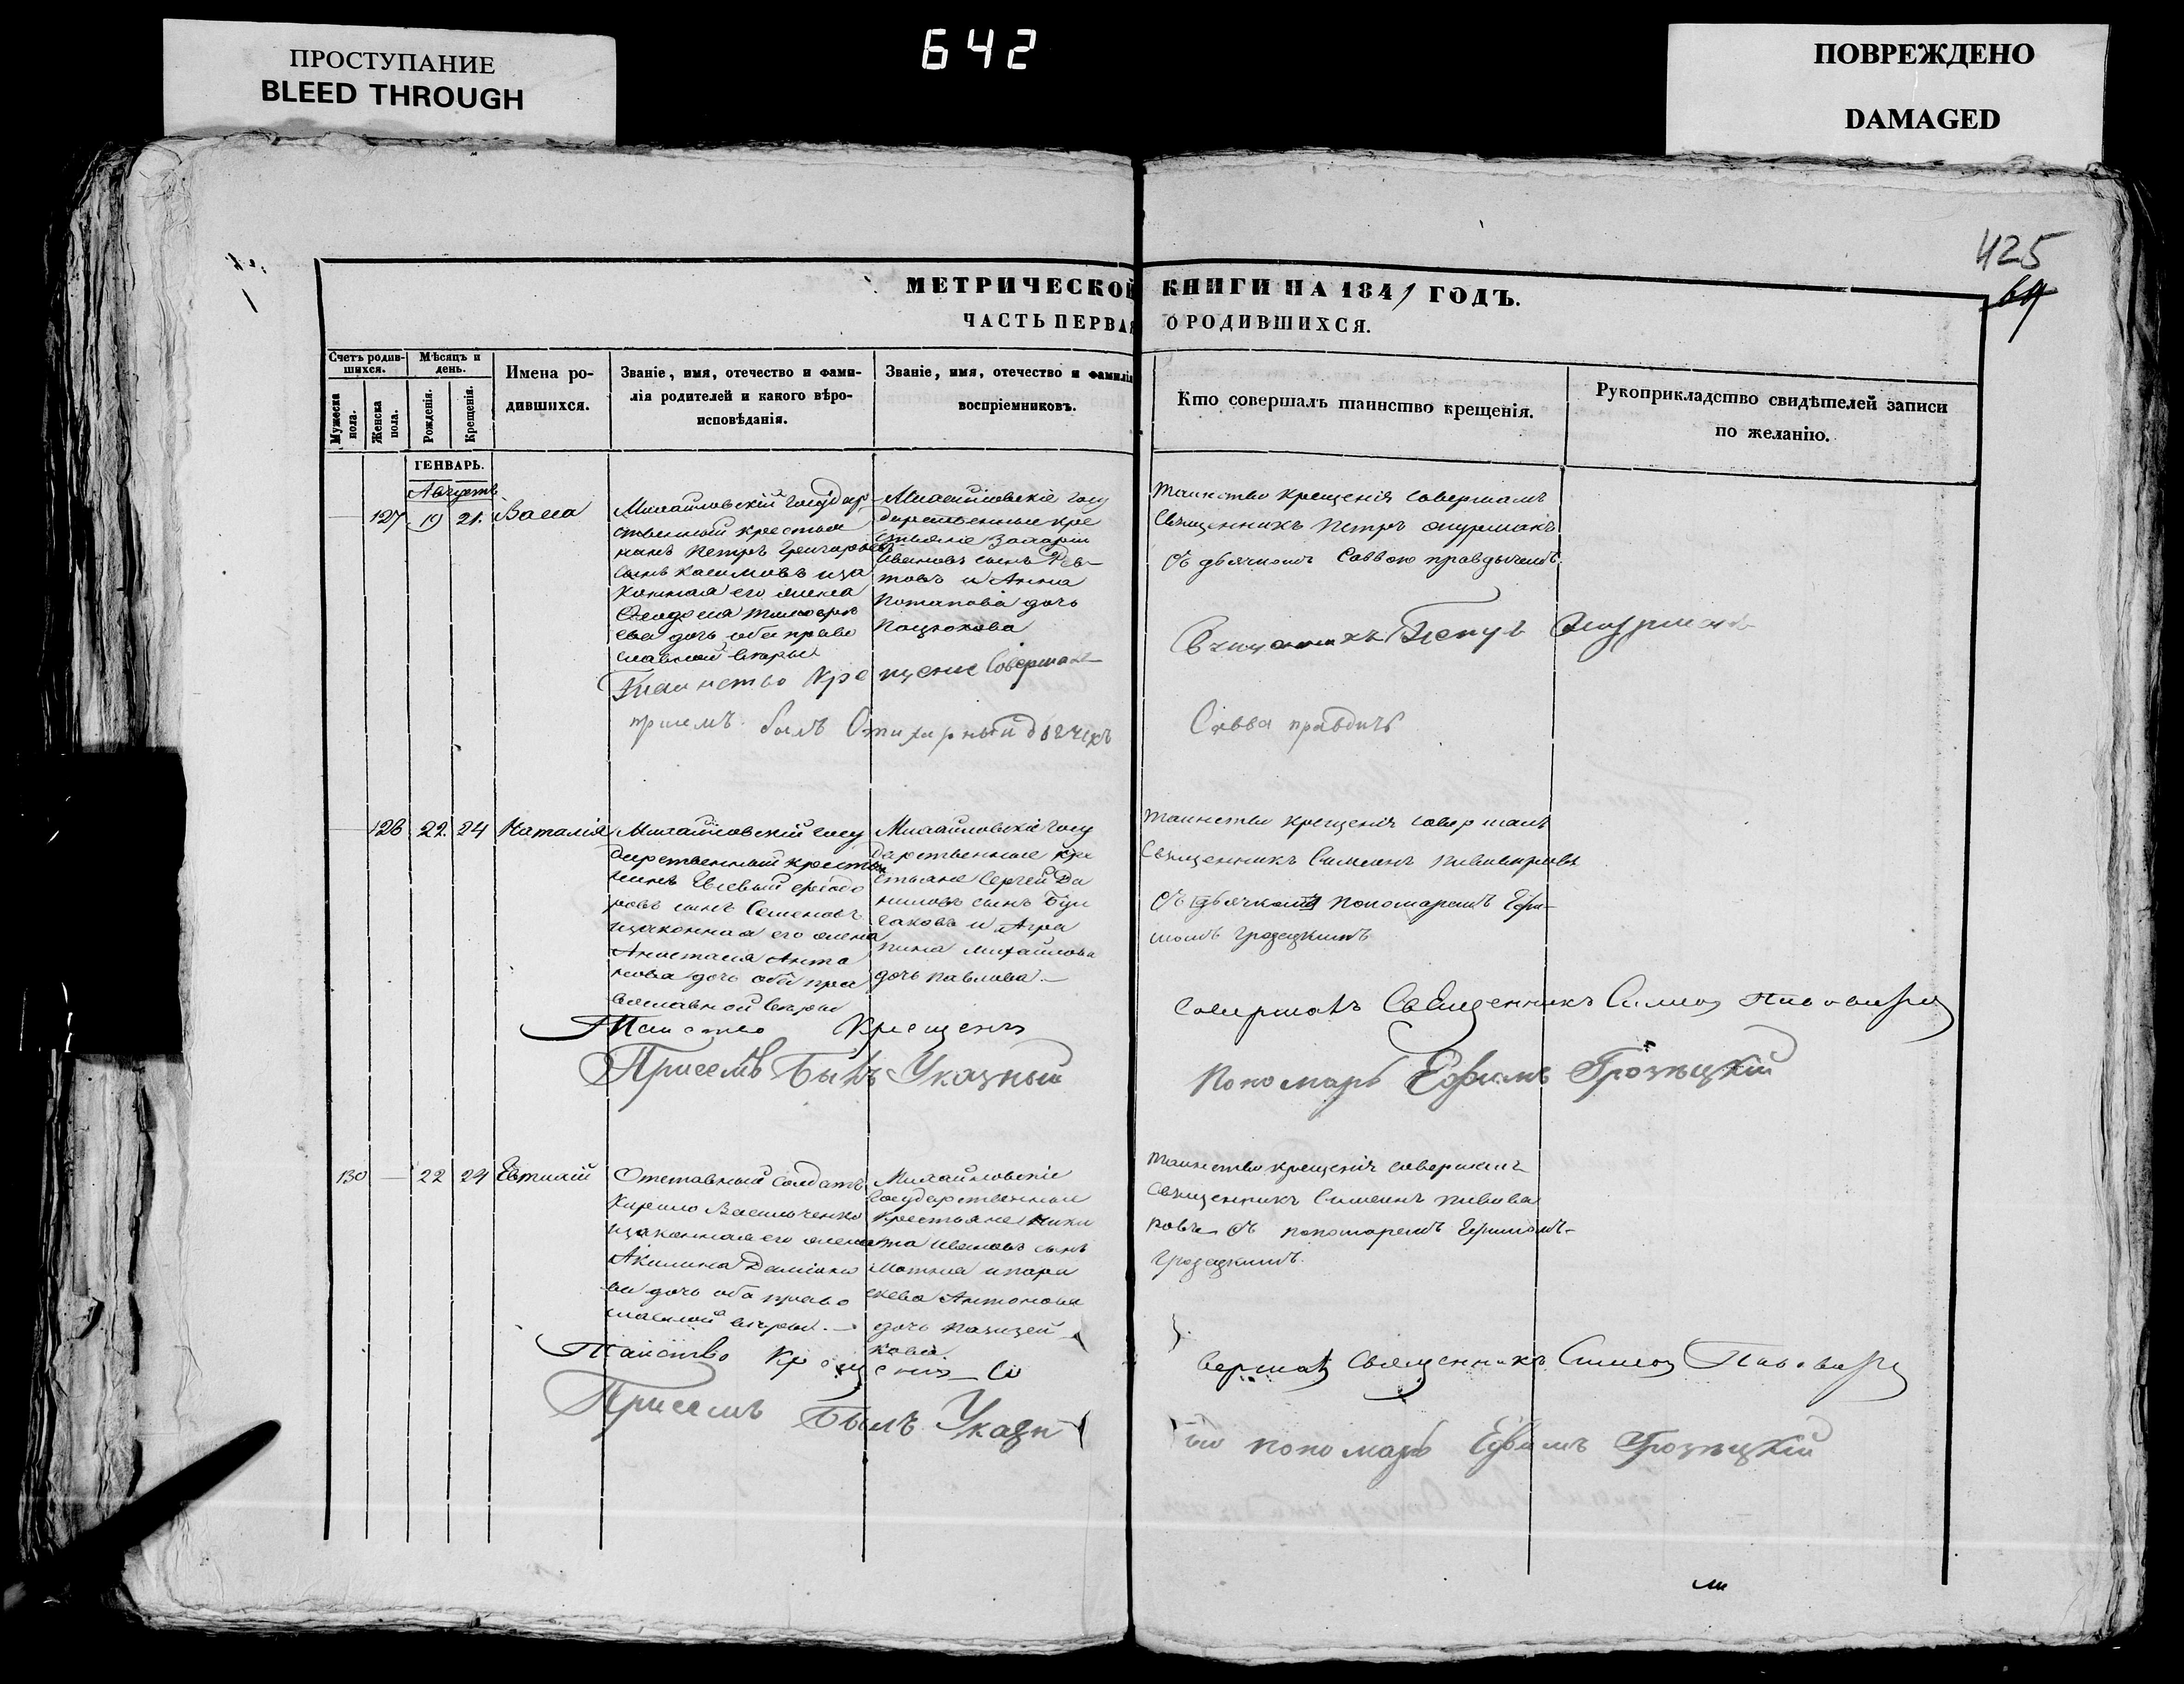 ПРОСТУПАНИЕ
BLEED THROUGH
642
ПОВРЕЖДЕНО
DAMAGED
425
64
МЕТРИЧЕСКОЙ КНИГИ НА 1841 ГОДЪ.
ЧАСТЬ ПЕРВАЯ О РОДИВШИХСЯ.
Счетъ родив-
шихся.
Мужеска
пола.
Женска
пола.
Мѣсяцъ и
день.
Рожденія.
Крещенія.
Имена ро-
дившихся.
Званіе, имя, отечество и фами-
лія родителей и какого вѣро-
исповѣданія.
Званіе, имя, отечество и фамилія
воспріемниковъ.
Кто совершалъ таинство крещенія.
Рукоприкладство свидѣтелей записи
по желанію.
ГЕНВАРЬ.
Августъ
127 19 21.
Михайловскій государ
ственный крестья
нинъ Петръ Григорьевъ
сынъ Касимовъ иза
конная его жена
дочь оба право
славной вѣры
Михайловскіе госу
дарственные кре
стьяне Захарій
Ивановъ сынъ
и Анна
Потапова дочь
Пацюкова
таинство крещенія совершалъ
священникъ Петръ
съ дьячкомъ Саввою правдычемъ.
Таинство Крещение Совершалъ Священникъ Петръ
притемъ былъ Стихарный дьячекъ Савва правдичъ
128 22. 24 Наталія
Михайловскій госу
дарственный крестья
нинъ Евсевій Феодо
ровъ сынъ Семеновъ
изаконная его жена
Анастасія Анто
нова дочь оба пра
вославной вѣры
Михайловскіе госу
дарственные кре
стьяне Сергей Да
ниловъ сынъ Бул
гаковъ и Агра
пина Михайлова
дочь Павлова.—
таинство крещенія совершалъ
священникъ Симеонъ Пивоваровъ
съ пономаремъ Ефи-
момъ Грозецкимъ
Таиство Крещенія совершалъ Священникъ Симеон Пивоваров
Присемъ Былъ Указный Пономарь Ефимъ Грозецкій
130 — 22 24 Евтихій
Отставный солдатъ
Кирило Васильченко
изаконная его жена
Акилина Даміано
ва дочь оба право
славной вѣры.—
Михайловскіе
государственные
крестьяне Ники
та Ивановъ сынъ
Мотня и пара
скева Антонова
дочь
кова.
таинство крещенія совершалъ
священникъ Симеонъ Пивова
ровъ съ пономаремъ Ефимомъ-
Грозецкимъ.
Таиство Крещенія Совершалъ Священникъ Симеон Пивоваров
Присемъ Былъ Указный пономарь Ефимъ Грозецкій